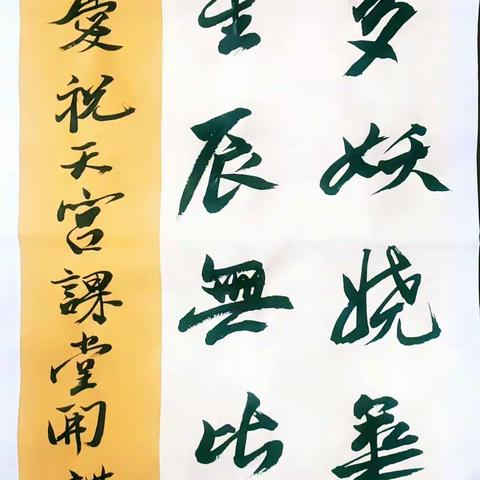 多妖娆華
生辰無比
慶祝天宮課堂開